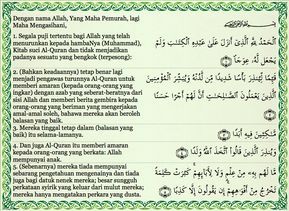 Dengan nama Allah, Yang Maha Pemurah, lagi
Maha Mengasihani,
1. Segala puji tertentu bagi Allah yang telah
menurunkan kepada hambaNya (Muhammad),
Kitab suci Al-Quran dan tidak menjadikan
padanya sesuatu yang bengkok (terpesong):
2. (Bahkan keadaannya) tetap benar lagi
menjadi pengawas turunnya Al-Quran untuk
memberi amaran (kepada orang-orang yang
ingkar) dengan azab yang seberat-beratnya dari
sisi Allah dan memberi berita gembira kepada
orang-orang yang beriman yang mengerjakan
amal-amal soleh, bahawa mereka akan beroleh
balasan yang baik.
3. Mereka tinggal tetap dalam (balasan yang
baik) itu selama-lamanya.
4. Dan juga Al-Quran itu memberi amaran
kepada orang-orang yang berkata: Allah
mempunyai anak.
5. (Sebenarnya) mereka tiada mempunyai
sebarang pengetahuan mengenainya dan tiada
juga bagi datuk nenek mereka; besar sungguh
perkataan syirik yang keluar dari mulut mereka;
mereka hanya mengatakan perkara yang dusta.
ٱلْحَمْدُ لِلَّهِ ٱلَّذِىٓ أَنزَلَ عَلَىٰ عَبْدِهِ ٱلْكِتَـٰبَ وَلَمْ
يَجْعَل لَّهُۥ عِوَجَا
قَيِّمًا لِّيُنذِرَ بَأْسًا شَدِيدًا مِّن لَّدُنْهُ وَيُبَشِّرَ ٱلْمُؤْمِنِينَ
ٱلَّذِينَ يَعْمَلُونَ ٱلصَّـٰلِحَـٰتِ أَنَّ لَهُمْ أَجْرًا حَسَنًا
مَّـٰكِثِينَ فِيهِ أَبَدًا
وَيُنذِرَ ٱلَّذِينَ قَالُوا۟ ٱتَّخَذَ ٱللَّهُ وَلَدًا
مَّا لَهُم بِهِۦ مِنْ عِلْمٍ وَلَا لِـَٔابَآئِهِمْ ۚ كَبُرَتْ كَلِمَةً
تَخْرُجُ مِنْ أَفْوَٰهِهِمْ ۚ إِن يَقُولُونَ إِلَّا كَذِبًا